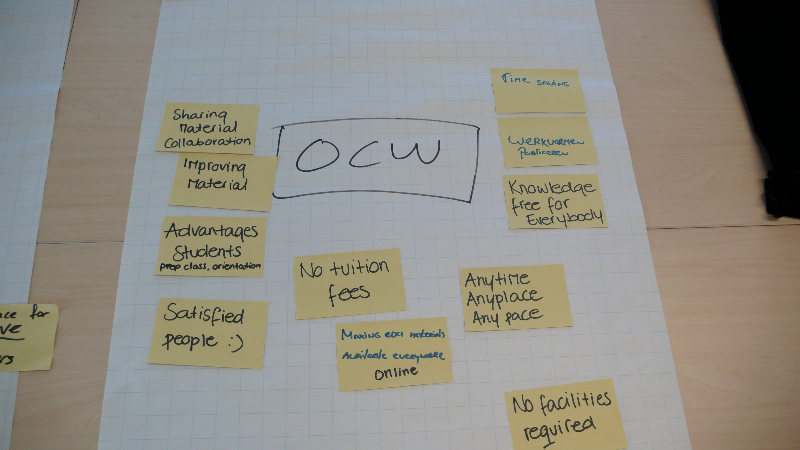 OCW
Sharing
Material
Collaboration
Improving
Material
Advantages
Students
prep class, orientation
Satisfied
people :)
No tuition
fees
Making edu materials
Available everywhere
online
Time saving
Werkvormen
Publiceren
Knowledge
free for
Everybody
Anytime
Anyplace
Any pace
No facilities
required
for